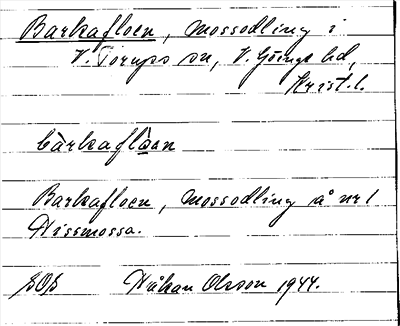 Barkafloen, mossodling i
V. Torups sn, V. Göinge hd,
Krist. l.
bàrkaflòən
Barkafloen, mossodling å nr 1
Nissmossa.
Håkan Olsson 1944.